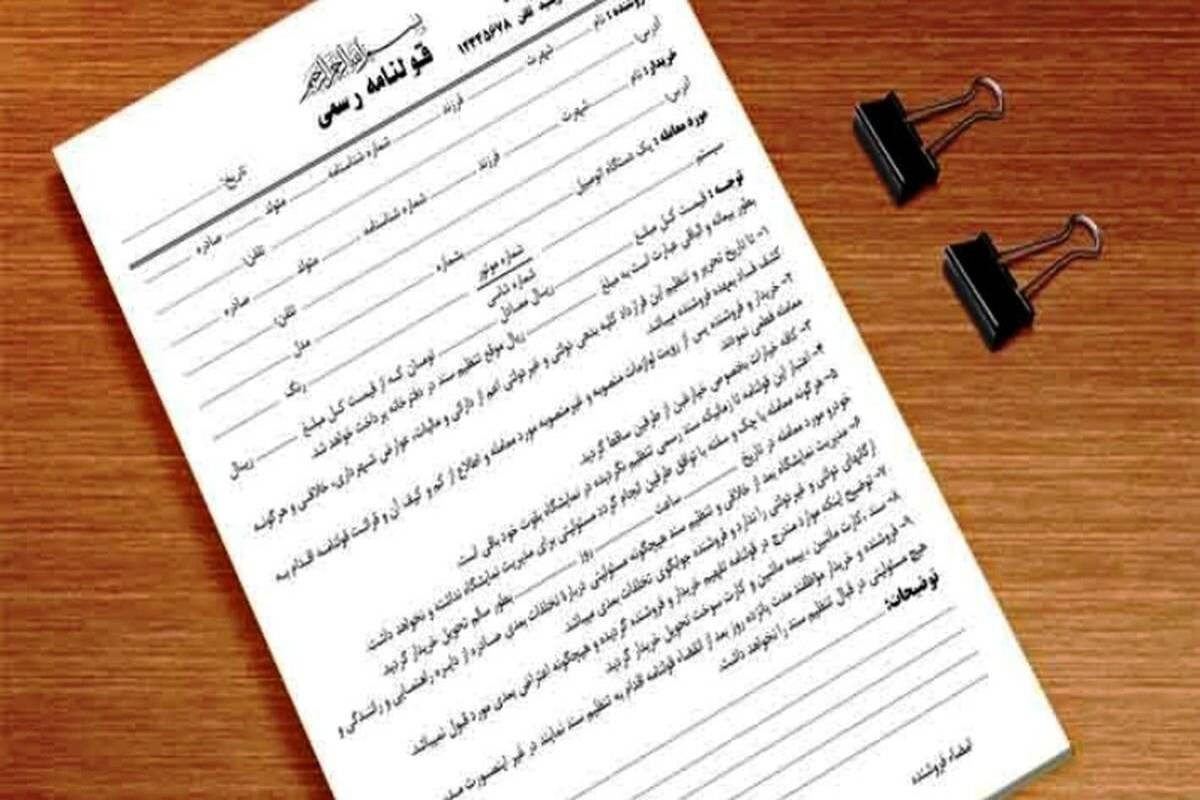 بسم الله الرحمن الرحیم
قولنامه رسمی
تلفن ۱۲۳۴۵۶۷۸
تاریخ:
فروشنده: نام شهرت فرزند شماره شناسنامه متولد صادره
آدرس تلفن:
خریدار: نام شهرت فرزند شماره شناسنامه متولد صادره
آدرس تلفن:
مورد معامله: یک دستگاه اتومبیل بشماره مدل
سیستم شماره موتور رنگ
شماره شاسی
توجه: قیمت کل مبلغ ریال معادل تومان که از قیمت کل مبلغ ریال
بطور بیعانه و الباقی عبارت است به مبلغ ریال موقع تنظیم سند در دفترخانه پرداخت خواهد شد.
۱- تا تاریخ تحریر و تنظیم این قرارداد کلیه بدهی دولتی و غیردولتی اعم از دارائی و مالیات، عوارض شهرداری، خلافی و هرگونه
کشف فساد بعهده فروشنده میباشد.
۲- خریدار و فروشنده پس از رویت لوازمات منصوبه و غیرمنصوبه مورد معامله و اطلاع از کم و کیف آن و قرائت قولنامه اقدام به
معامله قطعی نمودند.
۳- کافه خیارات بخصوص خیارغبن از طرفین ساقط گردید.
۴- اعتبار این قولنامه تا زمانیکه سند رسمی تنظیم نگردیده در نمایشگاه بقوت خود باقی است.
۵- هرگونه معامله با چک و سفته با توافق طرفین انجام گردد مسئولیتی برای مدیریت نمایشگاه نداشته و نخواهد داشت.
خودرو مورد معامله در تاریخ ساعت روز بطور سالم تحویل خریدار گردید.
۶- مدیریت نمایشگاه بعد از خلافی و تنظیم سند هیچگونه مسئولیتی درباره تخلفات بعدی صادره از دایره راهنمایی و رانندگی و
ارگانهای دولتی و غیردولتی را ندارد و فروشنده جوابگوی تخلفات بعدی میباشد.
۷- توضیح اینکه موارد مندرج در قولنامه تفهیم خریدار و فروشنده گردیده و هیچگونه اعتراض بعدی مورد قبول نمیباشد.
۸- سند، کارت ماشین، بیمه ماشین و کارت سوخت تحویل خریدار گردید.
۹- فروشنده و خریدار موظفند مدت پانزده روز بعد از انقضاء قولنامه اقدام به تنظیم سند نمایند در غیر اینصورت
هیچ مسئولیتی در قبال تنظیم سند را نخواهد داشت.
توضیحات:
امضاء فروشنده